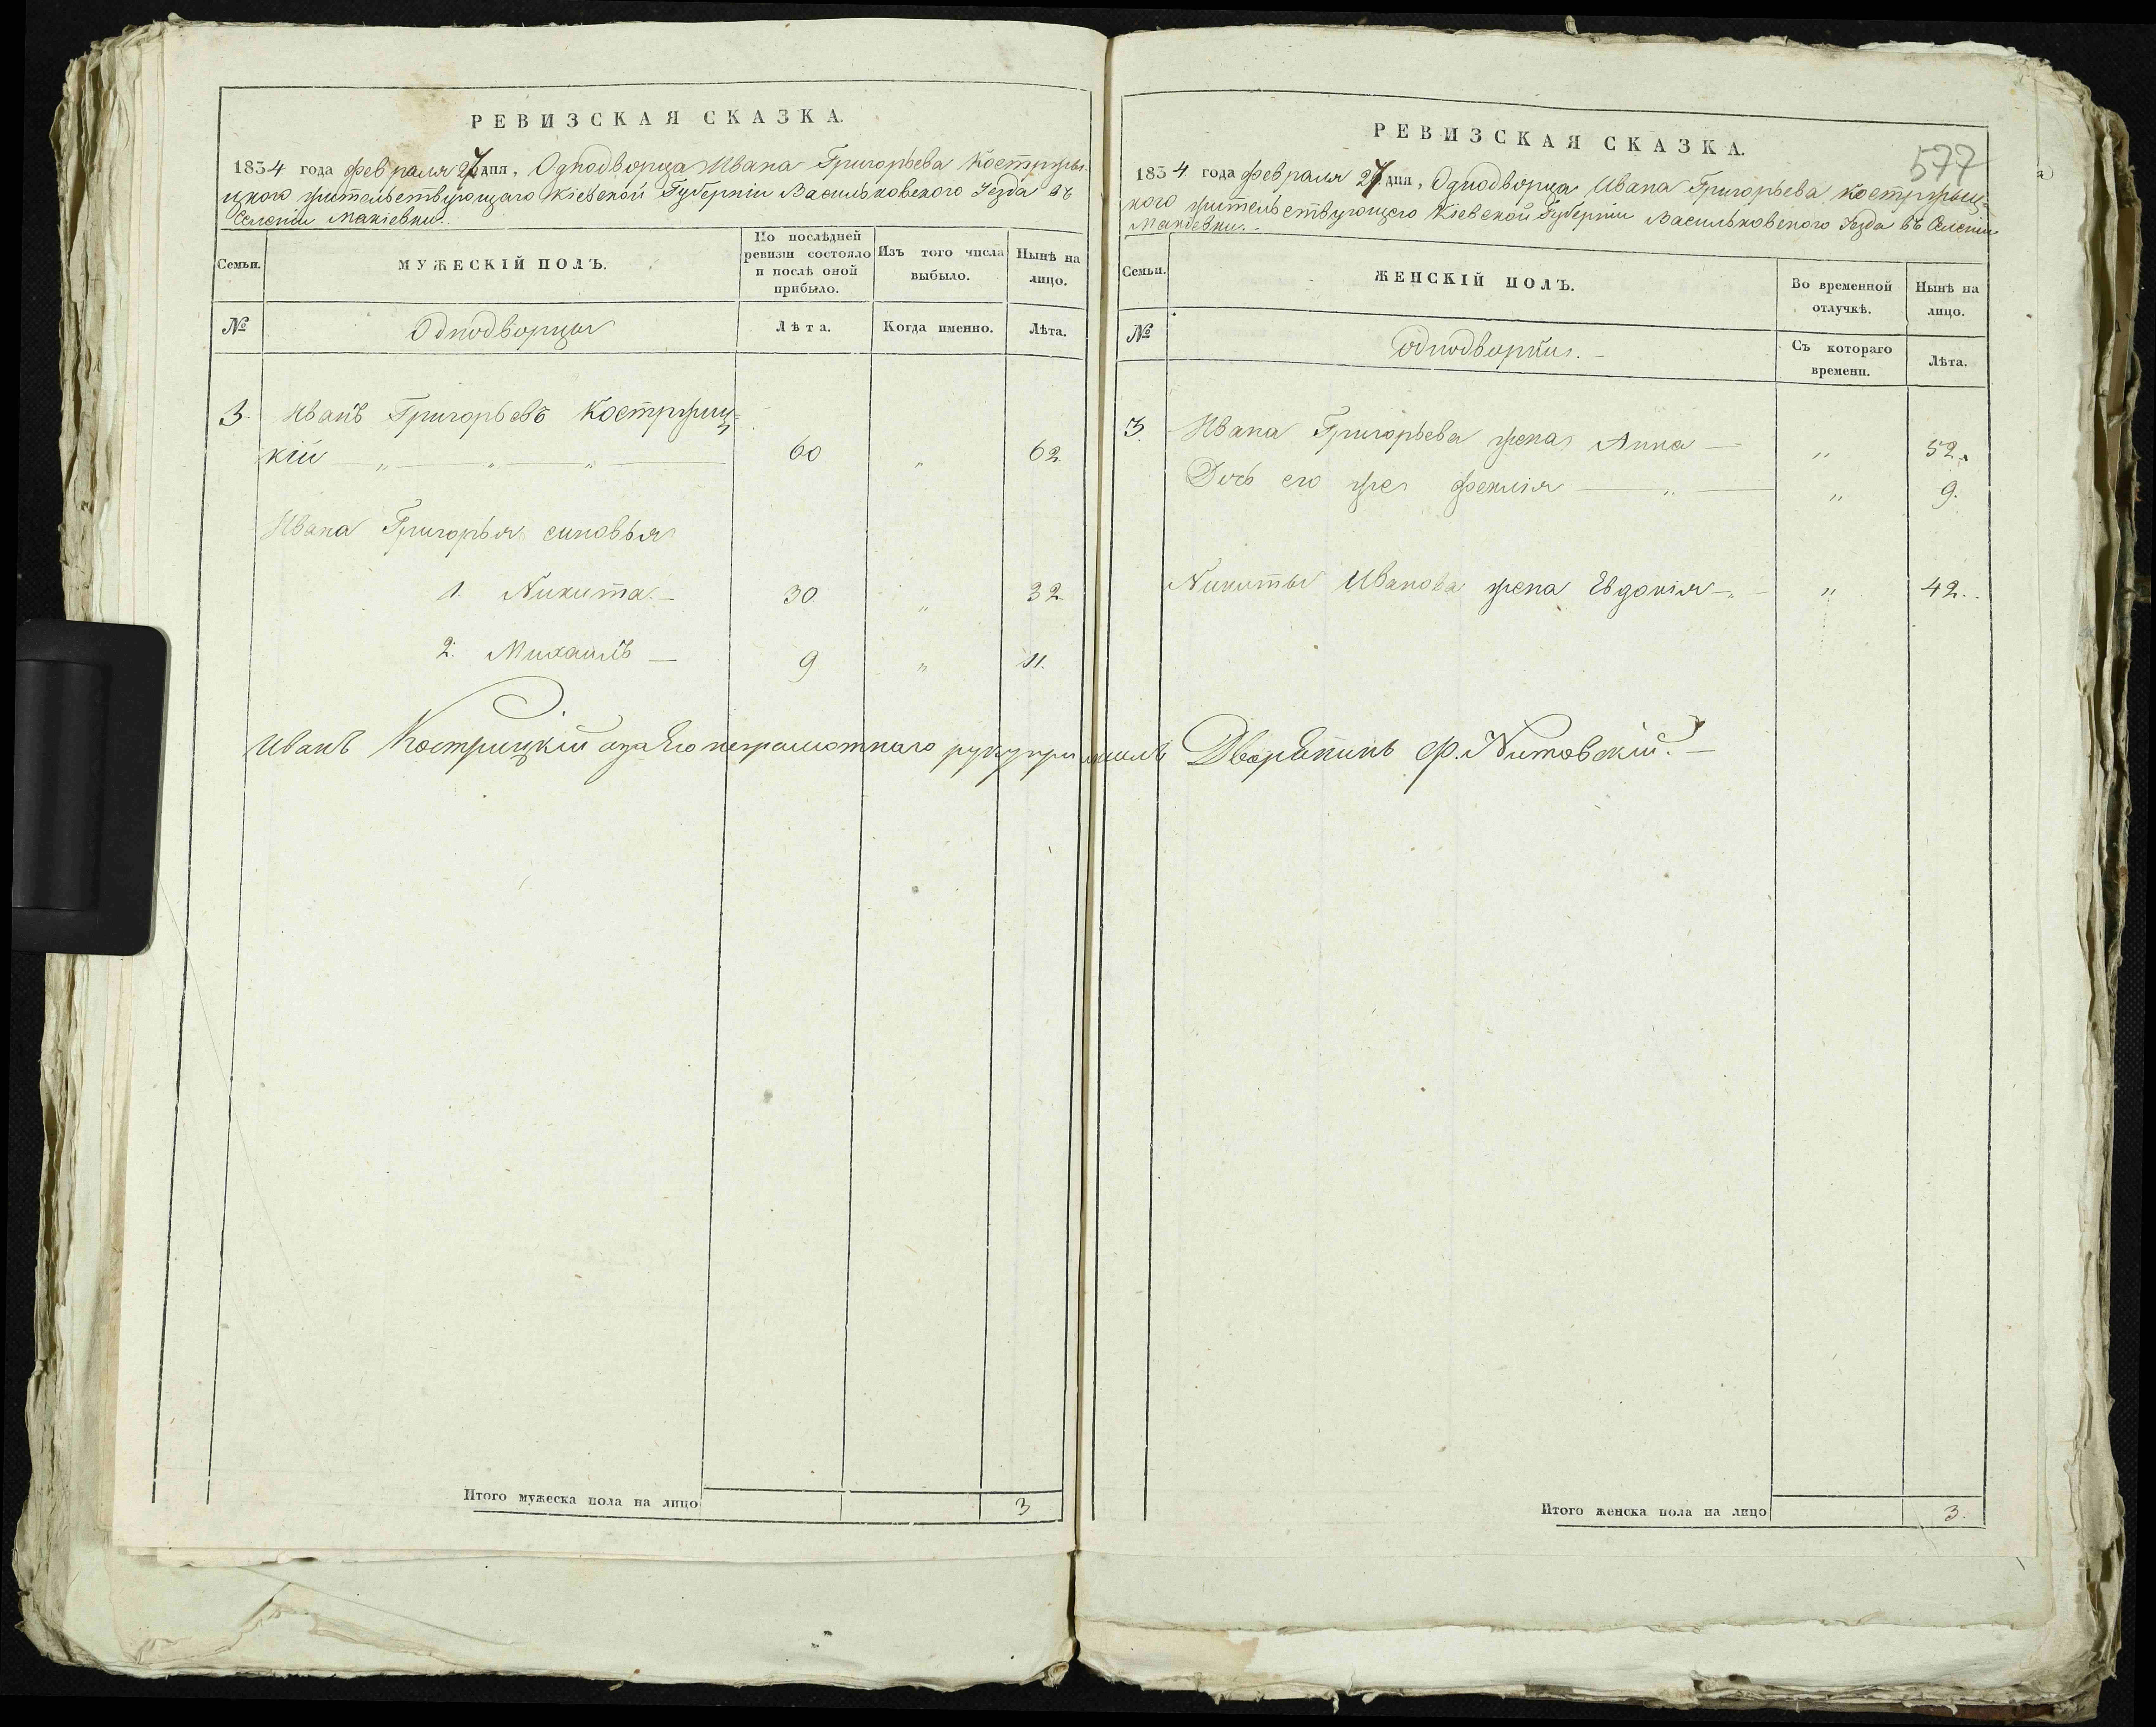 РЕВИЗСКАЯ СКАЗКА.
1834 года февраля 27 дня, Однодворца Ивана Григорьева Костржы
цкого жительствующаго Кіевской Губерніи Васильковского Уезда въ
Селеніи Макіевки.
Семьи.
МУЖЕСКІЙ ПОЛЪ.
По послѣдней ревизіи состояло и послѣ оной прибыло.
Изъ того числа выбыло.
Нынѣ на лицо.
№
Однодворцы
Лѣта.
Когда именно.
Лѣта.
3. Иванъ Григорьевъ Костржиц=
кій — „ — „ — „ — 60 „ 62.
Ивана Григорья синовья
1. Никита. — 30. „ 32.
2. Михаилъ — 9 „ 11.
Иванъ Кострицкій а за Его неграмотнаго руку приложилъ Дворянинъ Ф. Нитовскій. —
Итого мужеска пола на лицо 3
577
РЕВИЗСКАЯ СКАЗКА.
1834 года февраля 27 дня, Однодворца Ивана Григорьева Костржыц=
кого жительствующего Кіевской Губерніи Васильковского Уезда въ Селеніи
Макіевки. -
Семьи.
ЖЕНСКІЙ ПОЛЪ.
Во временной отлучкѣ.
Нынѣ на лицо.
№
Однодворки. -
Съ котораго времени.
Лѣта.
3. Ивана Григорьева жена Анна — „ 52.
Дочь его же Феклія — „ — „ 9.
Никиты Иванова жена Евдокія — „ - „ 42.
Итого женска пола на лицо 3.